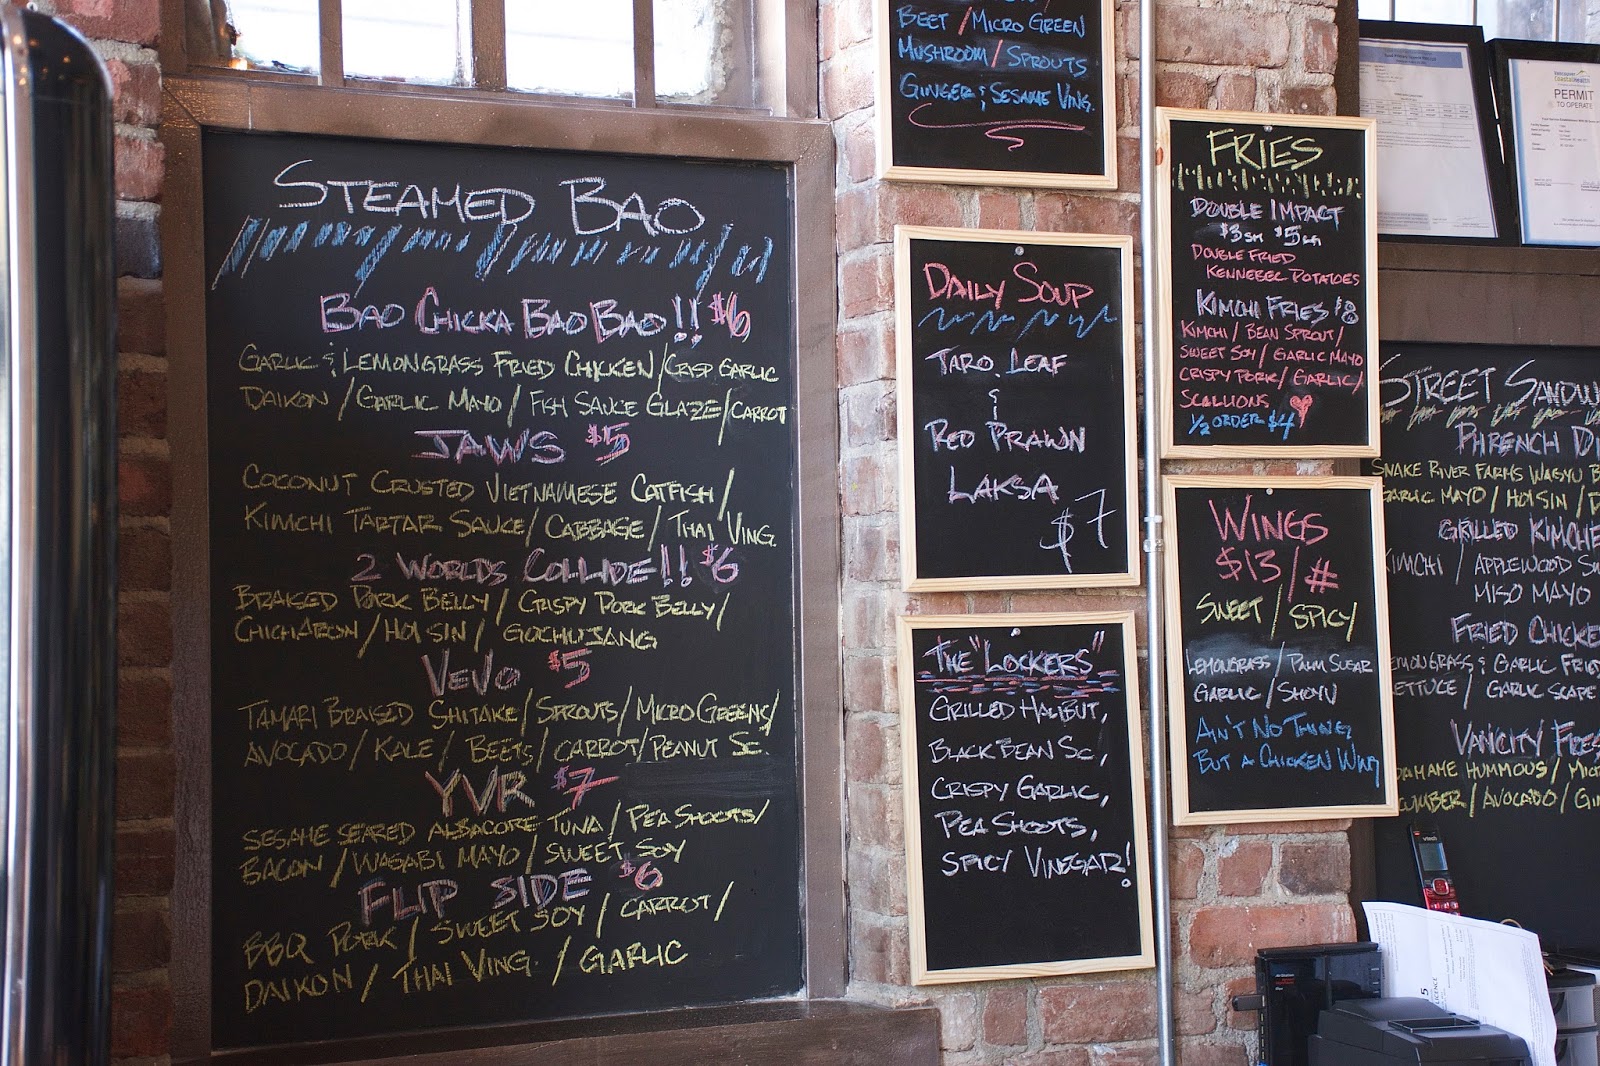 STEAMED BAO
BAO CHICKA BAO BAO!! $6
GARLIC & LEMONGRASS FRIED CHICKEN / CRISP GARLIC
DAIKON / GARLIC MAYO / FISH SAUCE GLAZE / CARROT
JAWS $5
COCONUT CRUSTED VIETNAMESE CATFISH /
KIMCHI TARTAR SAUCE / CABBAGE / THAI VING.
2 WORLDS COLLIDE!! $6
BRAISED PORK BELLY / CRISPY PORK BELLY /
CHICHARON / HOISIN / GOCHUJANG
VEVO $5
TAMARI BRAISED SHITAKE / SPROUTS / MICRO GREENS /
AVOCADO / KALE / BEETS / CARROT / PEANUT SC.
YVR $7
SESAME SEARED ALBACORE TUNA / PEA SHOOTS /
BACON / WASABI MAYO / SWEET SOY
FLIP SIDE $6
BBQ PORK / SWEET SOY / CARROT /
DAIKON / THAI VING. / GARLIC
BEET / MICRO GREEN
MUSHROOM / SPROUTS
GINGER & SESAME VING.
DAILY SOUP
TARO LEAF
&
RED PRAWN
LAKSA
$7
THE "LOCKERS"
GRILLED HALIBUT,
BLACK BEAN SC,
CRISPY GARLIC,
PEA SHOOTS,
SPICY VINEGAR!
FRIES
DOUBLE IMPACT
$3 SM $5 LG
DOUBLE FRIED
KENNEBEC POTATOES
KIMCHI FRIES $8
KIMCHI / BEAN SPROUT /
SWEET SOY / GARLIC MAYO
CRISPY PORK / GARLIC /
SCALLIONS
1/2 ORDER $4
WINGS
$13/#
SWEET / SPICY
LEMONGRASS / PALM SUGAR
GARLIC / SHOYU
AIN'T NO THING
BUT A CHICKEN WING
Vancouver
CoastalHealth
PERMIT
TO OPERATE
STREET SANDW
PHRENCH DI
SNAKE RIVER FARMS WAGYU B
GARLIC MAYO / HOISIN / D
GRILLED KIMCHE
KIMCHI / APPLEWOOD SM
MISO MAYO
FRIED CHICKE
LEMONGRASS & GARLIC FRIE
LETTUCE / GARLIC SCAPE
VANCITY FRES
DAMAME HUMMOUS / MICR
CUMBER / AVOCADO / GI
vtech